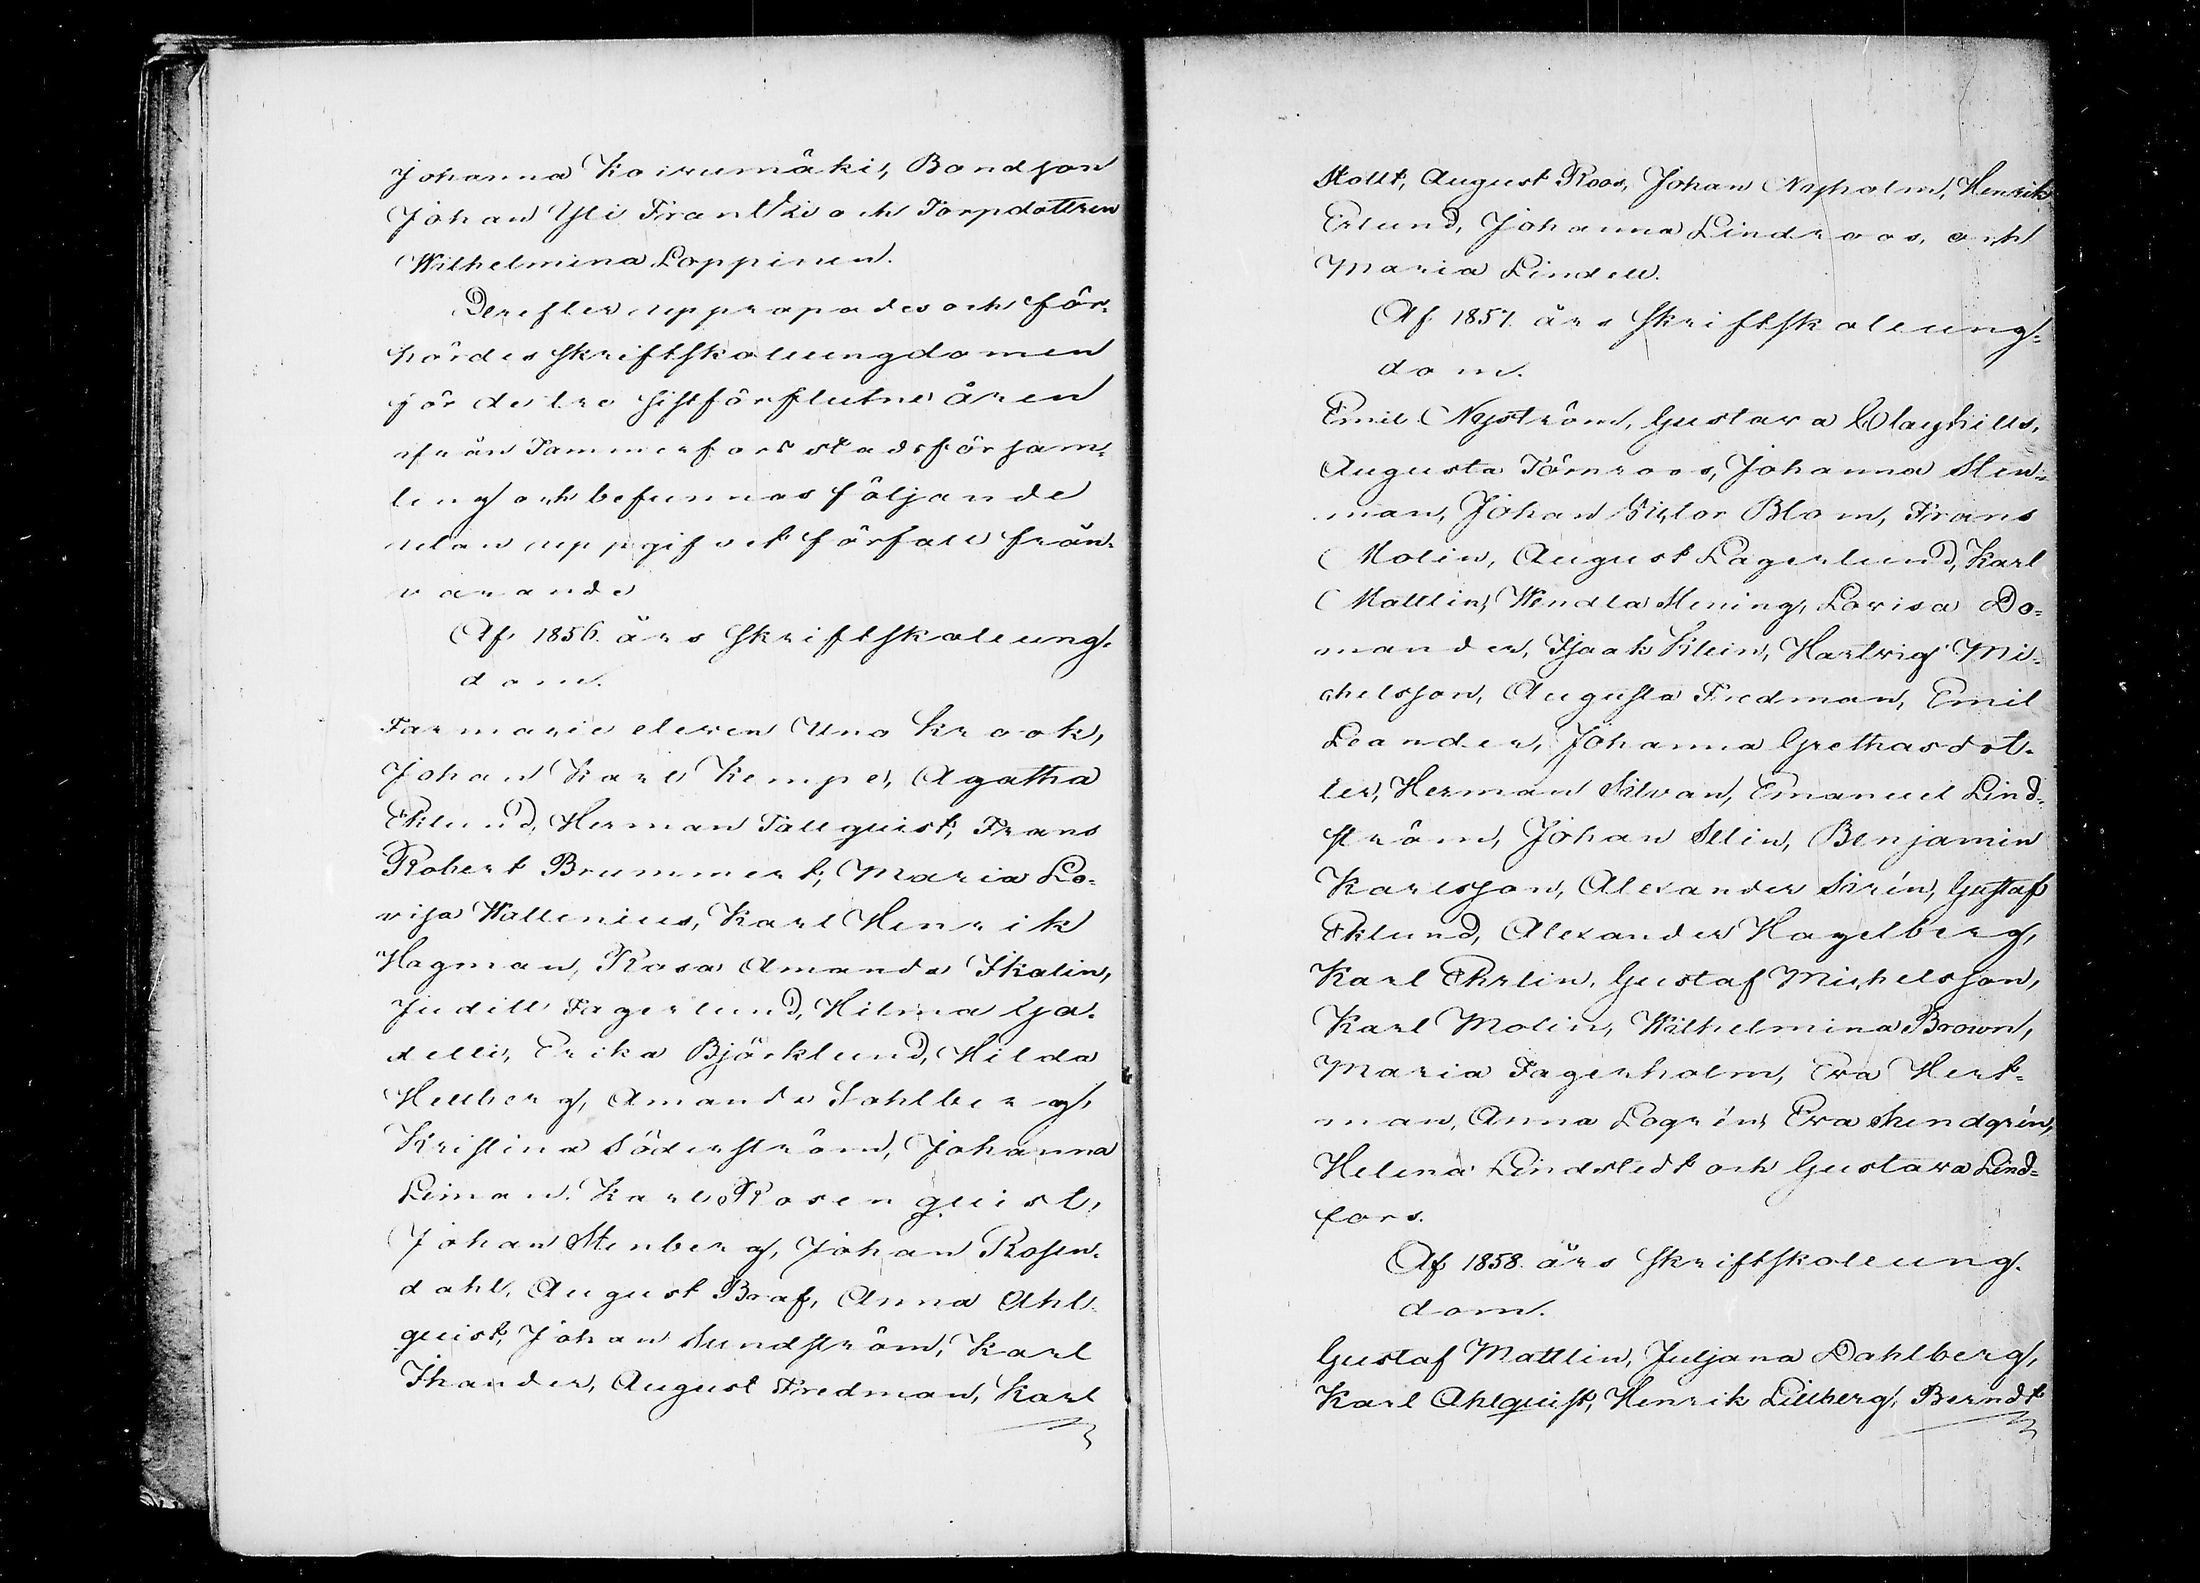 Johanna Koivumäki, Bondson
Johan Yli Frantti och Torpdottren
Wilhelmina Loppinen.
Derefter uppropades och för-
hördes skriftskoleungdomen
för de tre sistförflutne åren
ifrån Tammerfors stadsförsam-
ling och befunnos följande
utan uppgifvet förfall från-
varande
Af 1856. års skriftskoleung-
dom.
Farmarie eleven Uno Krook,
Johan Karl Kempe, Agatha
Eklund, Herman Tallquist, Frans
Robert Brummert, Maria Lo-
visa Wallenius, Karl Henrik
Hagman, Rosa Amanda Skalin,
Judith Fagerlund, Hilma Gja-
delli, Erika Björklund, Hilda
Hellberg, Amanda Sahlberg,
Kristina Söderström, Johanna
Liman. Karl Rosenquist,
Johan Stenberg, Johan Rosen-
dahl, August Braf, Anna Ahl-
quist, Johan Sundström, Karl
Thander, August Fredman, Karl
Stollt, August Roos, Johan Nyholm, Henrik
Erlund, Johanna Lindroos, och
Maria Lindell.
Af 1857. års skriftskoleung-
dom.
Emil Nyström, Gustava Clayhills,
Augusta Törnroos, Johanna Sten-
man, Johan Victor Blom, Frans
Molin, August Lagerlund, Karl
Mattlin, Wendla Mening, Lovisa Do-
mander, Isaak Klein, Hartvig Mi-
chelsson, Augusta Fredman, Emil
Leander, Johanna Grethasdot-
ter, Herman Silvan, Emanuel Lind-
ström, Johan Sélin, Benjamin
Karlsson, Alexander Sirén, Gustaf
Eklund, Alexander Hagelberg,
Karl Ehrlin, Gustaf Michelsson,
Karl Molin, Wilhelmina Brown,
Maria Fagerholm, Eva Hert-
man, Anna Logrén, Eva Stendgrén,
Helena Lindstedt och Gustava Lind-
fors.
Af 1858. års skriftskoleung-
dom.
Gustaf Mattlin, Juljana Dahlberg,
Karl Ahlquist, Henrik Lillberg, Berndt